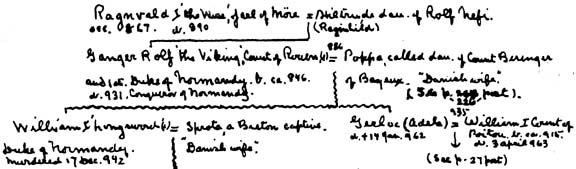 Ragnvald I 'the Wise', Jarl of Möre = Hiltrude dau. of Rolf Nefi.
occ. 867. d. 890 (Ragnhild)
886
Ganger Rolf 'the Viking', Count of Rouen (1) = Poppa, called dau. of Count Berenger
and 1st. Duke of Normandy. b. ca. 846. of Bayeux. "Danish wife".
d. 931, Conqueror of Normandy. (See p. post).
935
William I 'Longsword' (1) = Sprota a Breton captive. Gerloc (Adela) = William I Count of
Duke of Normandy. "Danish wife". d. + 14 Jan. 962 Poitou b. ca. 915.
murdered 17 Dec. 942 d. 3 april 963
(See p. 27 post)